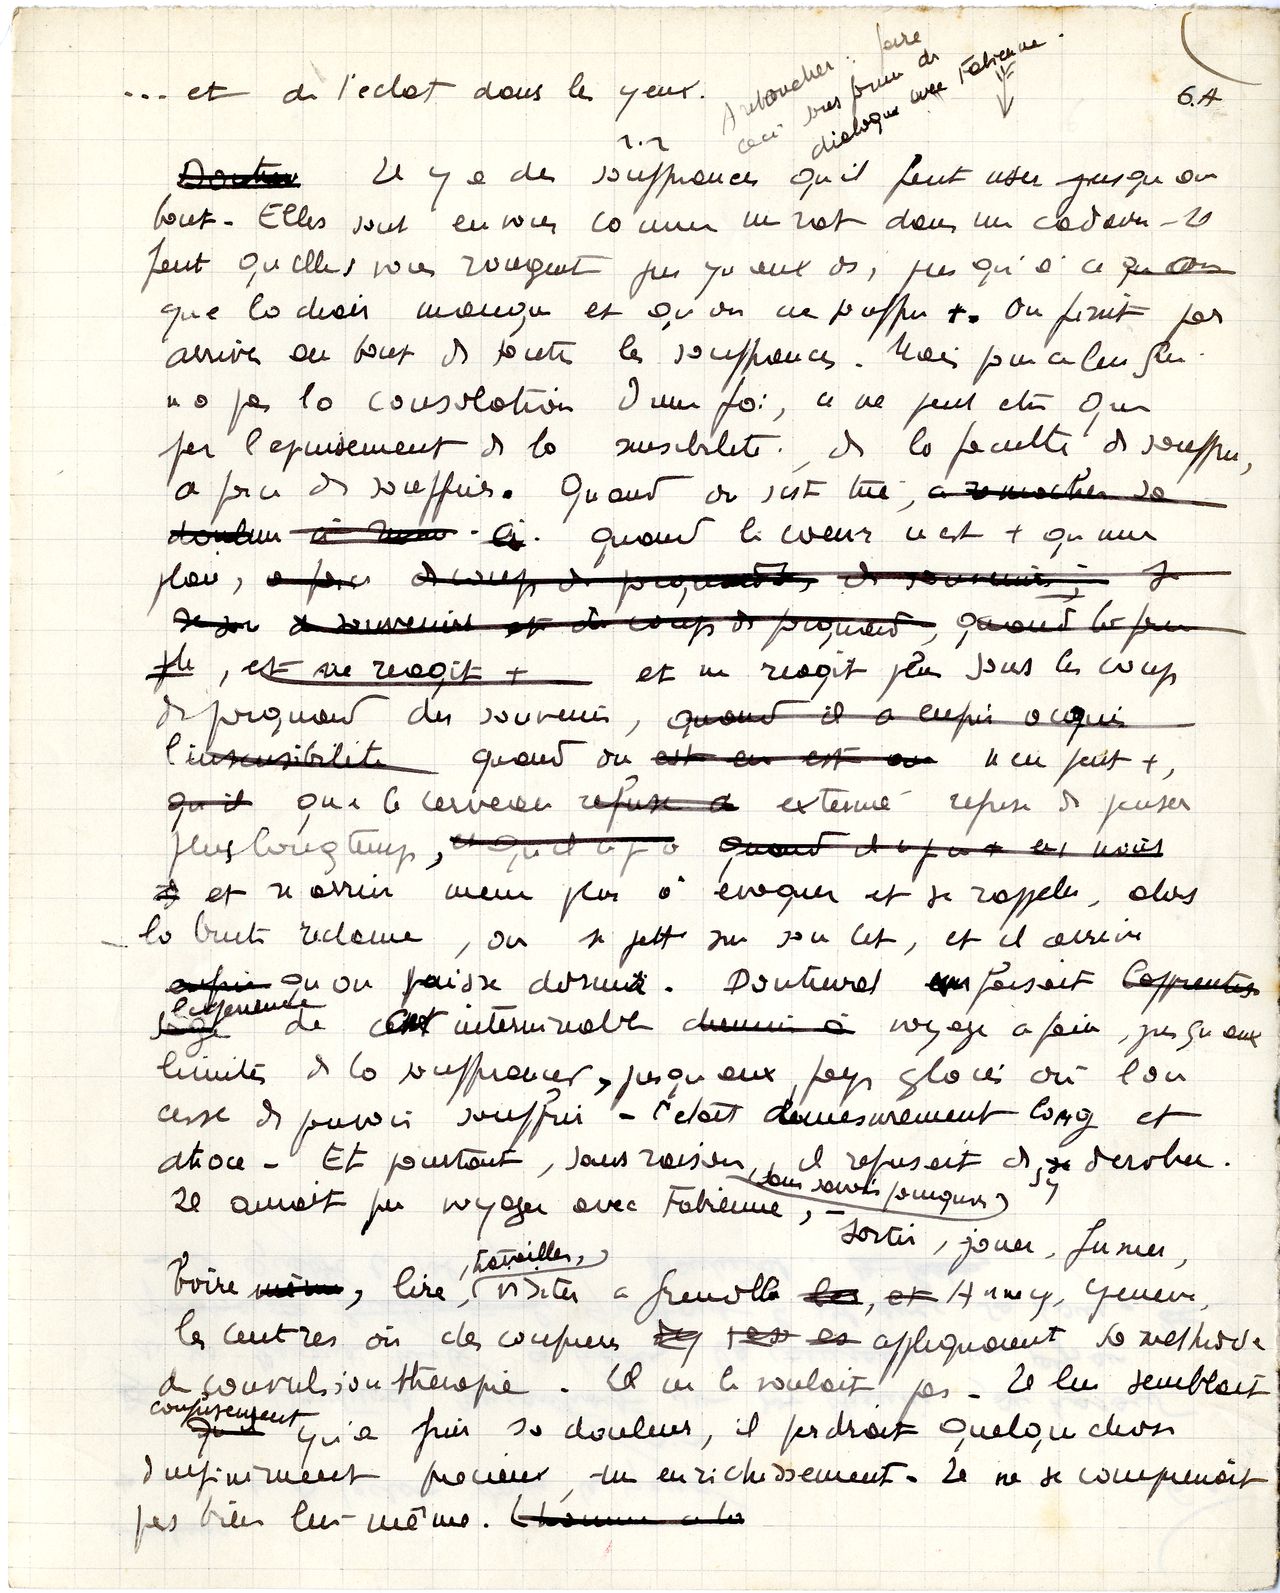 ... et de l'eclat dans les yeux.
A retoucher : faire
ceci sous forme de
dialogue avec Fabienne.
6.A
Il y a des souffrances qu'il faut user jusqu'au
bout - Elles sont en vous comme un rat dans un cadavre - Il
faut qu'elles vous rongent jusqu'aux os, jusqu'à ce
que la chair manque et qu'on ne souffre +. On finit par
arriver au bout de toutes les souffrances. Mais pour celui qui
n'a pas la consolation d'une foi, ce ne peut etre que
par l'epuisement de la sensibilite, de la faculte de souffrir,
a force de souffrir. Quand on s'est tué, a remacher sa
douleur quand le coeur n'est + qu'une
plaie, a force de coups de poignards, de souvenirs,
de souvenirs et de coups de poignard, quand
, et ne reagit + et ne reagit plus sous les coups
de poignard des souvenirs, quand il a enfin acquis
l'insensibilite quand on n'en peut +,
qu'il que le cerveau refuse d exténué refuse de penser
plus longtemps, quand il n'y a +
et n'arrive meme plus à evoquer et se rappeler, alors
la brute reclame, on se jette sur son lit, et il arrive
enfin qu'on puisse dormir. Doutreval faisait l'apprentis
sage l'experience de cet interminable chemin à voyage a faire, jusqu'aux
limites de la souffrance, jusqu'aux pays glaces où l'on
cesse de pouvoir souffrir - C'était demesurement long et
atroce - Et pourtant, sans raison, il refusait de s'y derober.
(sans savoir pourquoi)
Il aurait pu voyager avec Fabienne, - sortir, jouer, fumer,
boire même, lire, (travailler,) visiter a Grenoble, et Annecy, Geneve,
les centres où des confreres appliquaient sa methode
de convulsionthérapie. Il ne le voulait pas - Il lui semblait
confusement qu'a fuir sa douleur, il perdrait quelque chose
d'infiniment precieux, un enrichissement - Il ne se comprenait
pas bien lui-même. L'homme a la